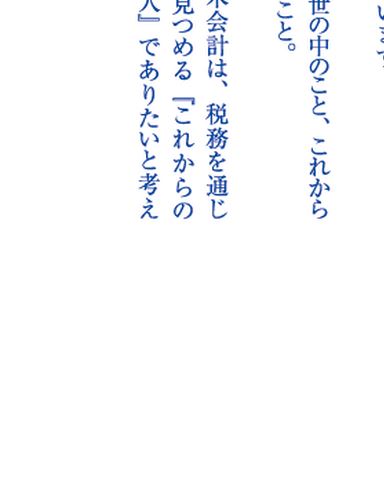 います。
世の中のこと、これから
こと。
会計は、税務を通じ
見つめる『これからの
人』でありたいと考え